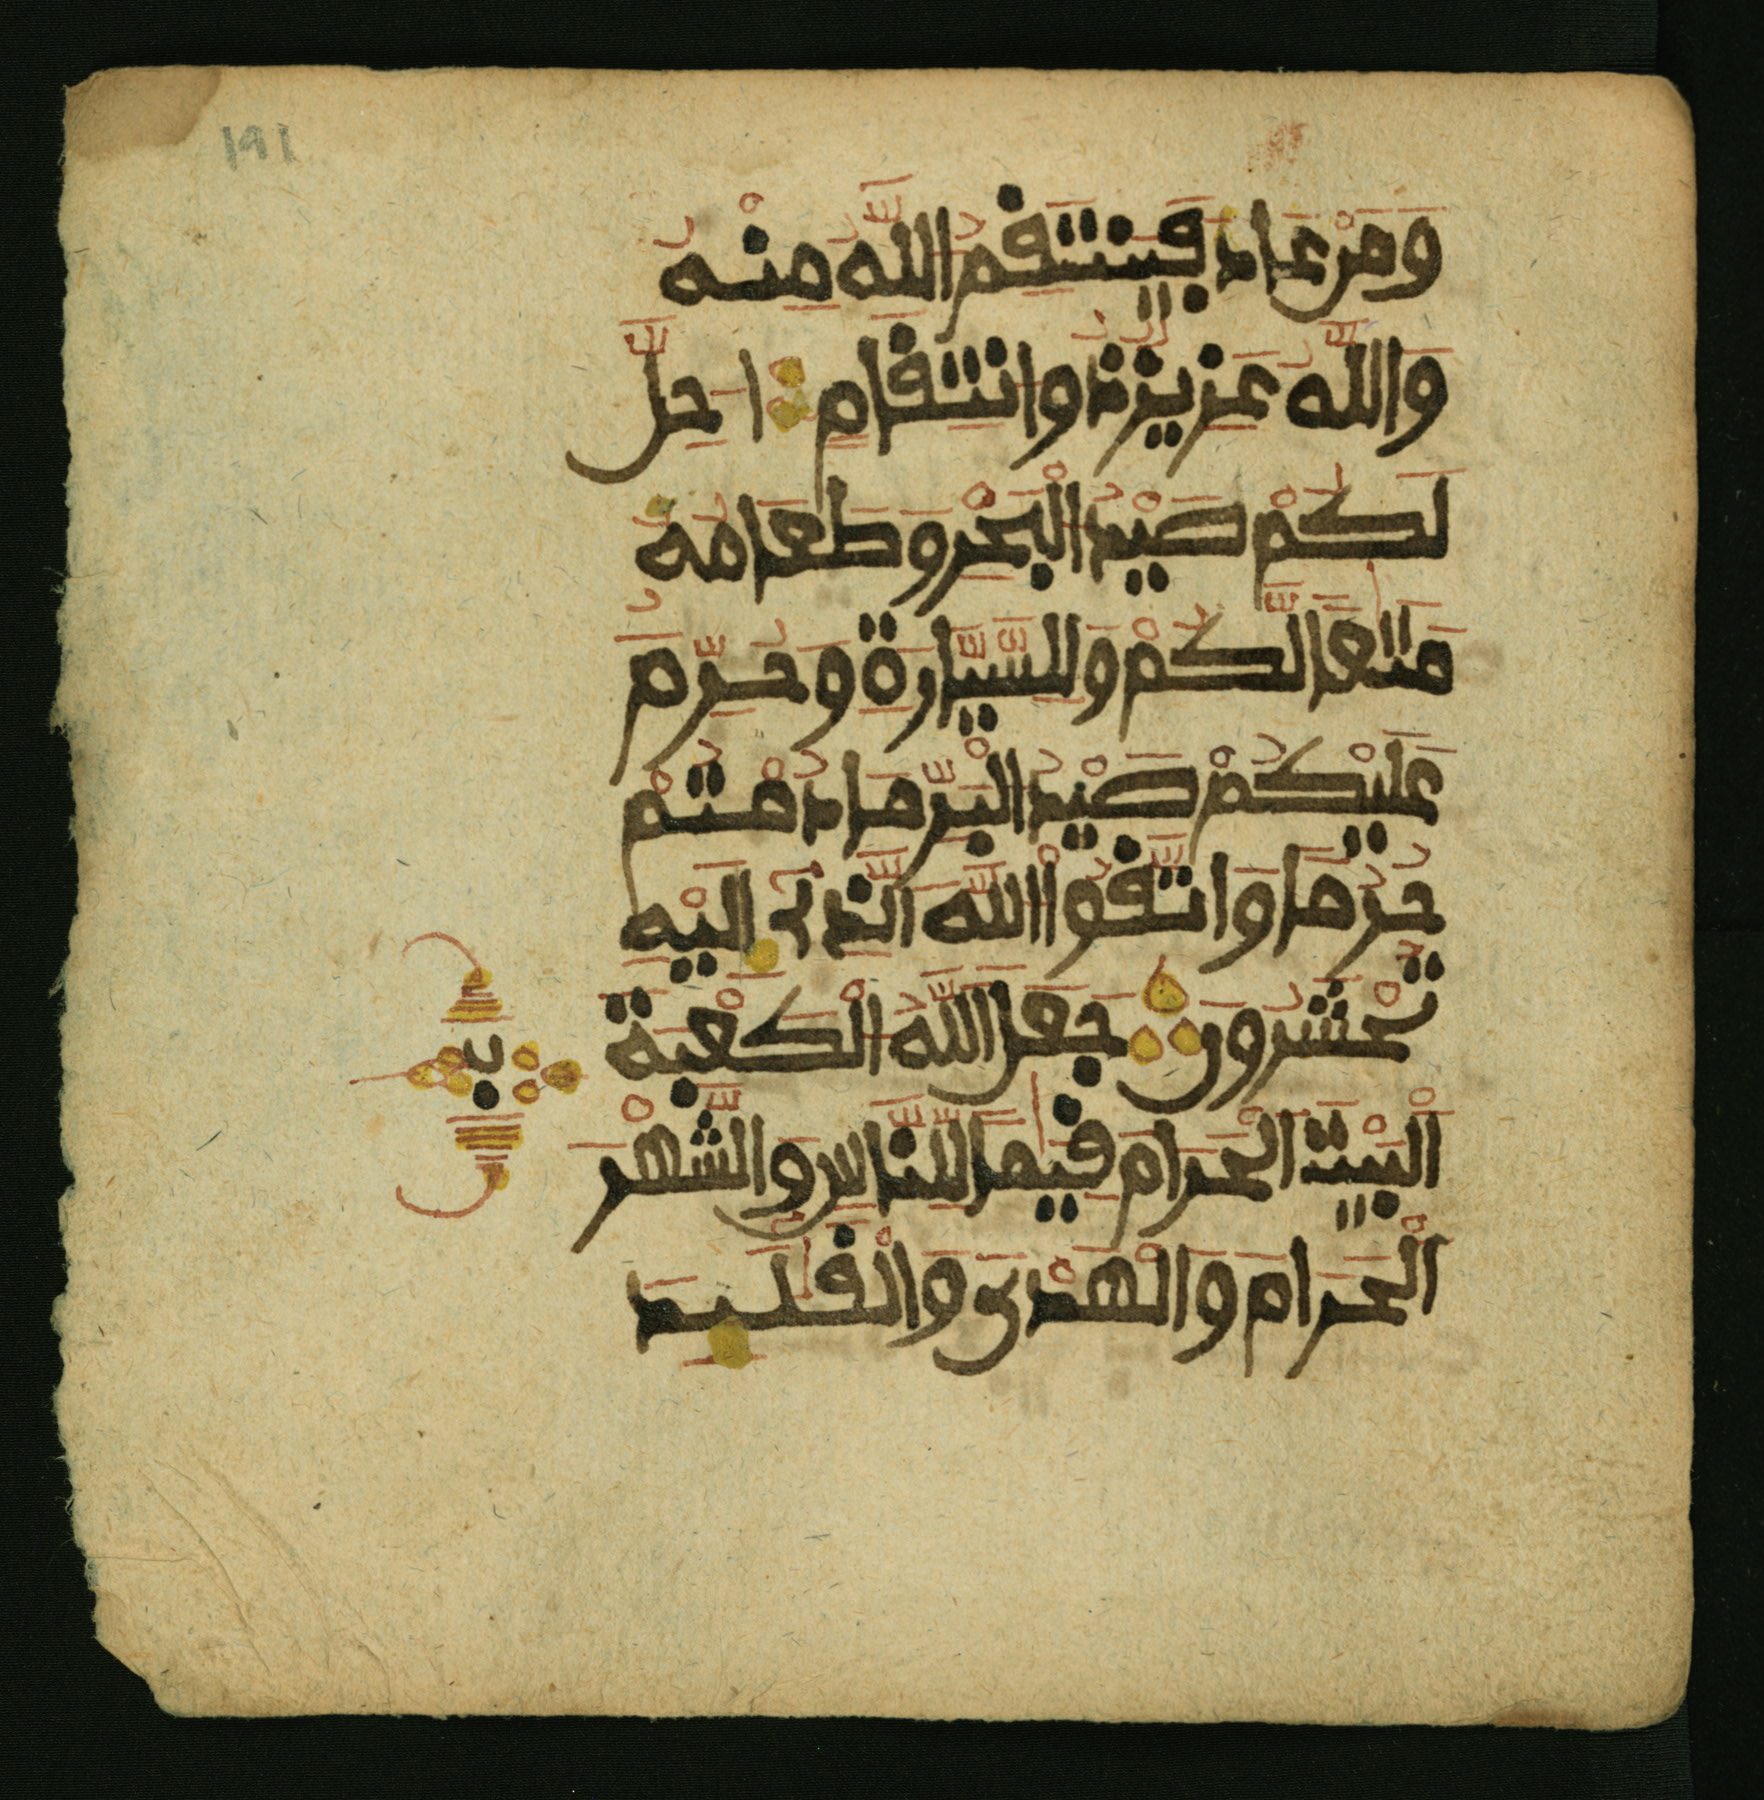 191
وَمَنْ عَادَ فَيَنتَقِمُ اللَّهُ مِنْهُ
وَاللَّهُ عَزِيزٌ ذُو انتِقَامٍ ا حِلَّ
لَكُمْ صَيْدُ الْبَحْرِ وَطَعَامُهُ
مَتَٰعًا لَّكُمْ وَلِلسَّيَّارَةِ وَحُرِّمَ
عَلَيْكُمْ صَيْدُ الْبَرِّ مَا دُمْتُمْ
حُرُمًا وَاتَّقُوا اللَّهَ الَّذِى إِلَيْهِ
تُحْشَرُونَ جَعَلَ اللَّهُ الْكَعْبَةَ
ب
الْبَيْتَ الْحَرَامَ قِيَٰمًا لِّلنَّاسِ وَالشَّهْرَ
الْحَرَامَ وَالْهَدْىَ وَالْقَلَٰئِدَ